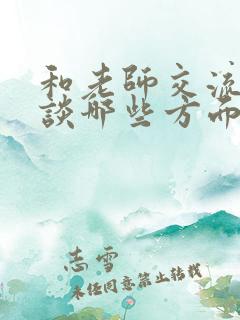 和老师交流
談哪些方面
志雪
未经同意禁止转载